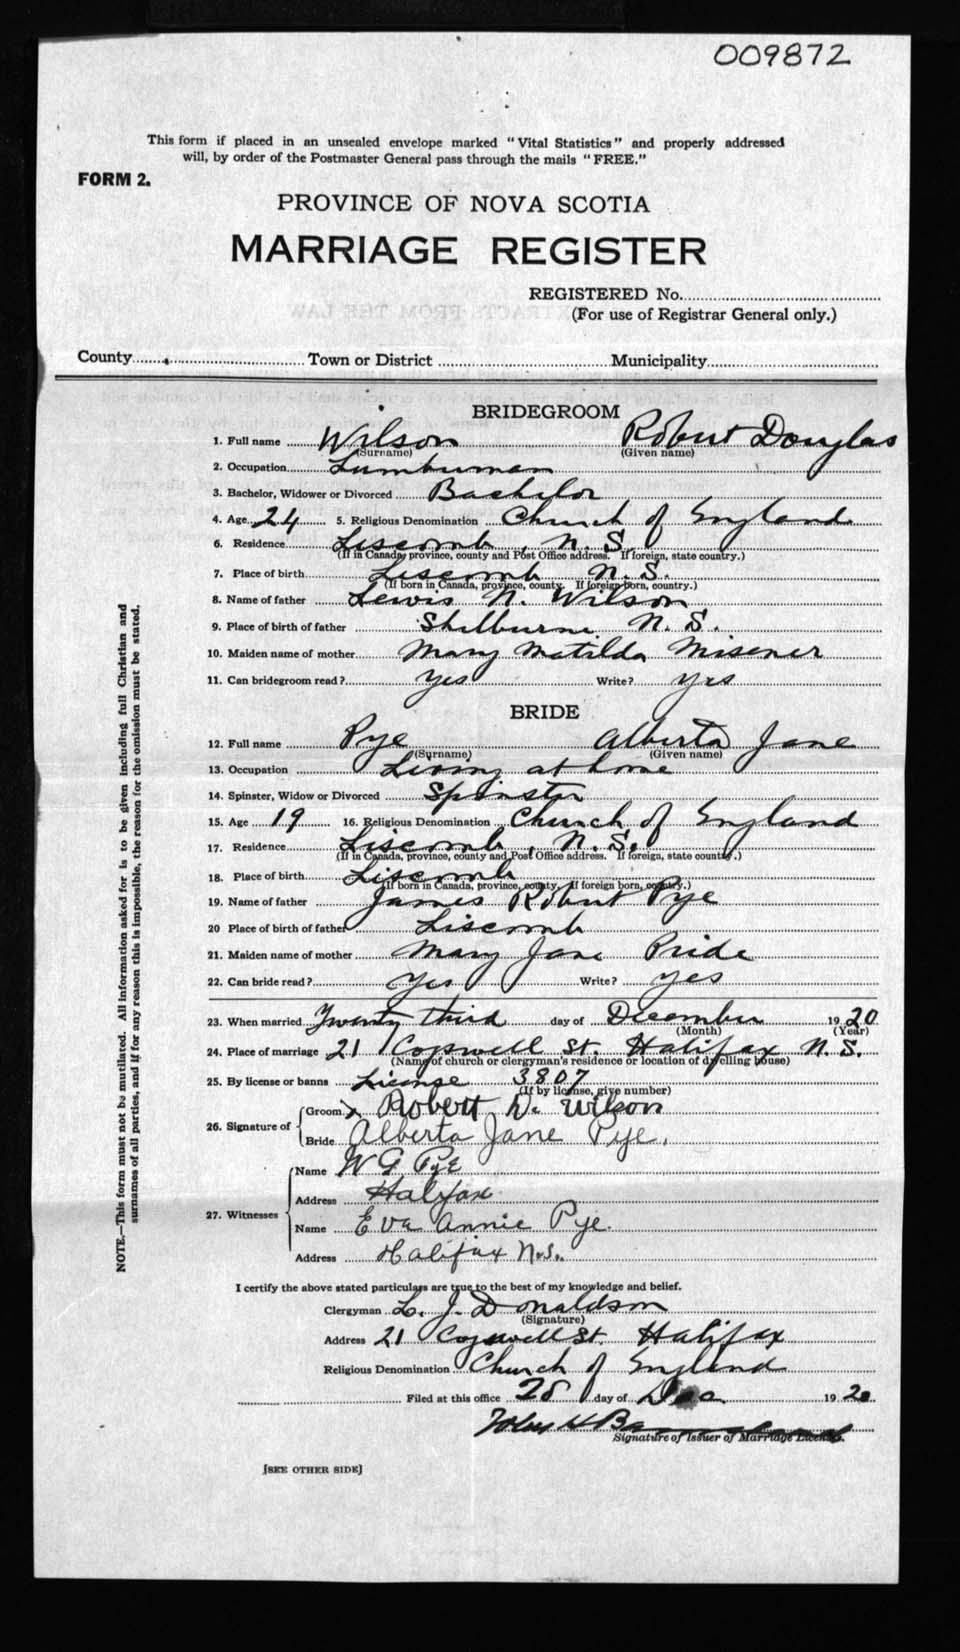 009872
This form if placed in an unsealed envelope marked "Vital Statistics" and properly addressed
will, by order of the Postmaster General pass through the mails "FREE."
FORM 2.
PROVINCE OF NOVA SCOTIA
MARRIAGE REGISTER
REGISTERED No.
(For use of Registrar General only.)
County Town or District Municipality
BRIDEGROOM
1. Full name Wilson Robert Douglas
(Surname) (Given name)
2. Occupation Lumberman
3. Bachelor, Widower or Divorced Bachelor
4. Age 24 5. Religious Denomination Church of England
6. Residence Liscomb, N.S.
(If in Canada, province, county and Post Office address. If foreign, state country.)
7. Place of birth Liscomb N.S.
(If born in Canada, province, county. If foreign born, country.)
8. Name of father Lewis N. Wilson
9. Place of birth of father Shelburne N.S.
10. Maiden name of mother Mary Matilda Misener
11. Can bridegroom read? Yes Write? Yes
BRIDE
12. Full name Pye Alberta Jane
(Surname) (Given name)
13. Occupation Living at home
14. Spinster, Widow or Divorced Spinster
15. Age 19 16. Religious Denomination Church of England
17. Residence Liscomb, N.S.
(If in Canada, province, county and Post Office address. If foreign, state country.)
18. Place of birth Liscomb
(If born in Canada, province, county. If foreign born, country.)
19. Name of father James Robert Pye
20 Place of birth of father Liscomb
21. Maiden name of mother Mary Jane Pride
22. Can bride read? Yes Write? Yes
23. When married Twenty third day of December 1920
(Month) (Year)
24. Place of marriage 21 Cogswell St. Halifax N.S.
(Name of church or clergyman's residence or location of dwelling house)
25. By license or banns License 3807
(If by license, give number)
26. Signature of Groom X Robert D. Wilson
Bride Alberta Jane Pye.
27. Witnesses Name W G Pye
Address Halifax
Name Eva Annie Pye.
Address Halifax N.S.
I certify the above stated particulars are true to the best of my knowledge and belief.
Clergyman L. J. Donaldson
(Signature)
Address 21 Cogswell St. Halifax
Religious Denomination Church of England
Filed at this office 28 day of Dec 1920
Signature of Issuer of Marriage License.
[SEE OTHER SIDE]
NOTE.—This form must not be mutilated. All information asked for is to be given including full Christian and
surnames of all parties, and if for any reason this is impossible, the reason for the omission must be stated.